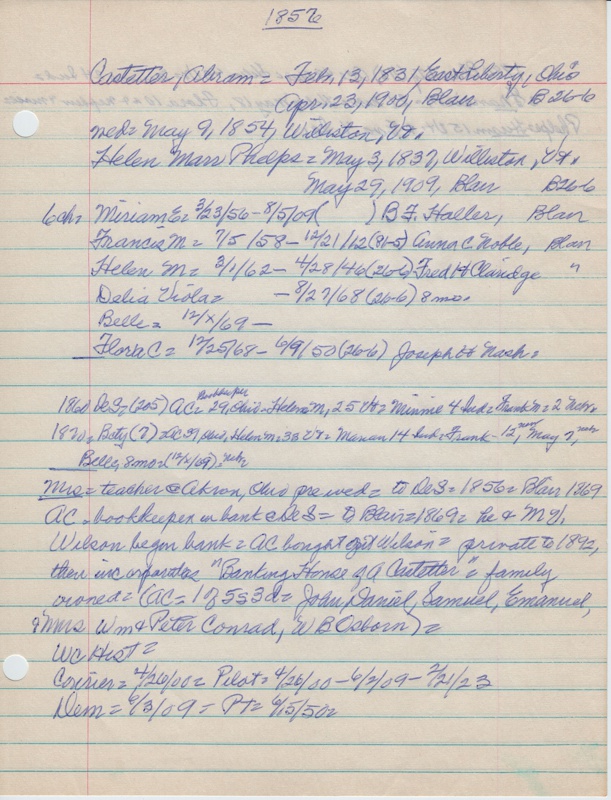 1856
Castetter, Abram = Feb, 13, 1831, East Liberty, Ohio
Apr, 23, 1900, Blair B26-6
med = May 9, 1854, Williston, Vt,
Helen Marr Phelps = May 3, 1837, Williston, Vt,
May 29, 1909, Blair B26-6
6 ch = Miriam E = 3/23/56 - 8/5/09( ) B F. Haller, Blair
Francis M = 7/5/58 - 12/21/12 (81-5) Anna C Noble, Blair
Helen M = 3/1/62 - 4/28/46 (26-6) Fred H Claridge "
Delia Viola = - 8/27/68 (26-6) 8 mo.
Belle = 12/x/69 -
Flora C = 12/25/68 - 6/9/50 (26-6) Joseph Nash =
Bookkeeper
1860 DeS = (205) AC = 29, Ohio - Helen M, 25 Vt = Minnie 4 Ind = Frank M = 2 Nebr.
1870 = (?) = AC 39, Ohio, Helen M = 33 Vt = Marian 14 Ind = Frank - 12, May 7, nebr
Belle, 8 mo = (12/x/69) = nebr
Mrs = teacher @ Akron, Ohio pre wed = to DeS = 1856 = Blair 1869
AC = bookkeeper in bank @ DeS = to Blair = 1869 = he & M
Wilson began bank = AC bought out Wilson = private to 1892,
then incorporates "Banking House of A Castetter" = family
owned = (AC = 1 of 5s 3d = John, Daniel, Samuel, Emanuel,
& Mrs Wm & Peter Conrad, W B Osborn) =
Wc Hist =
Courier = 4/26/00 = Pilot = 4/26/00 - 6/2/09 - 2/21/23
Dem = 6/3/09 = PT = 6/15/50 =